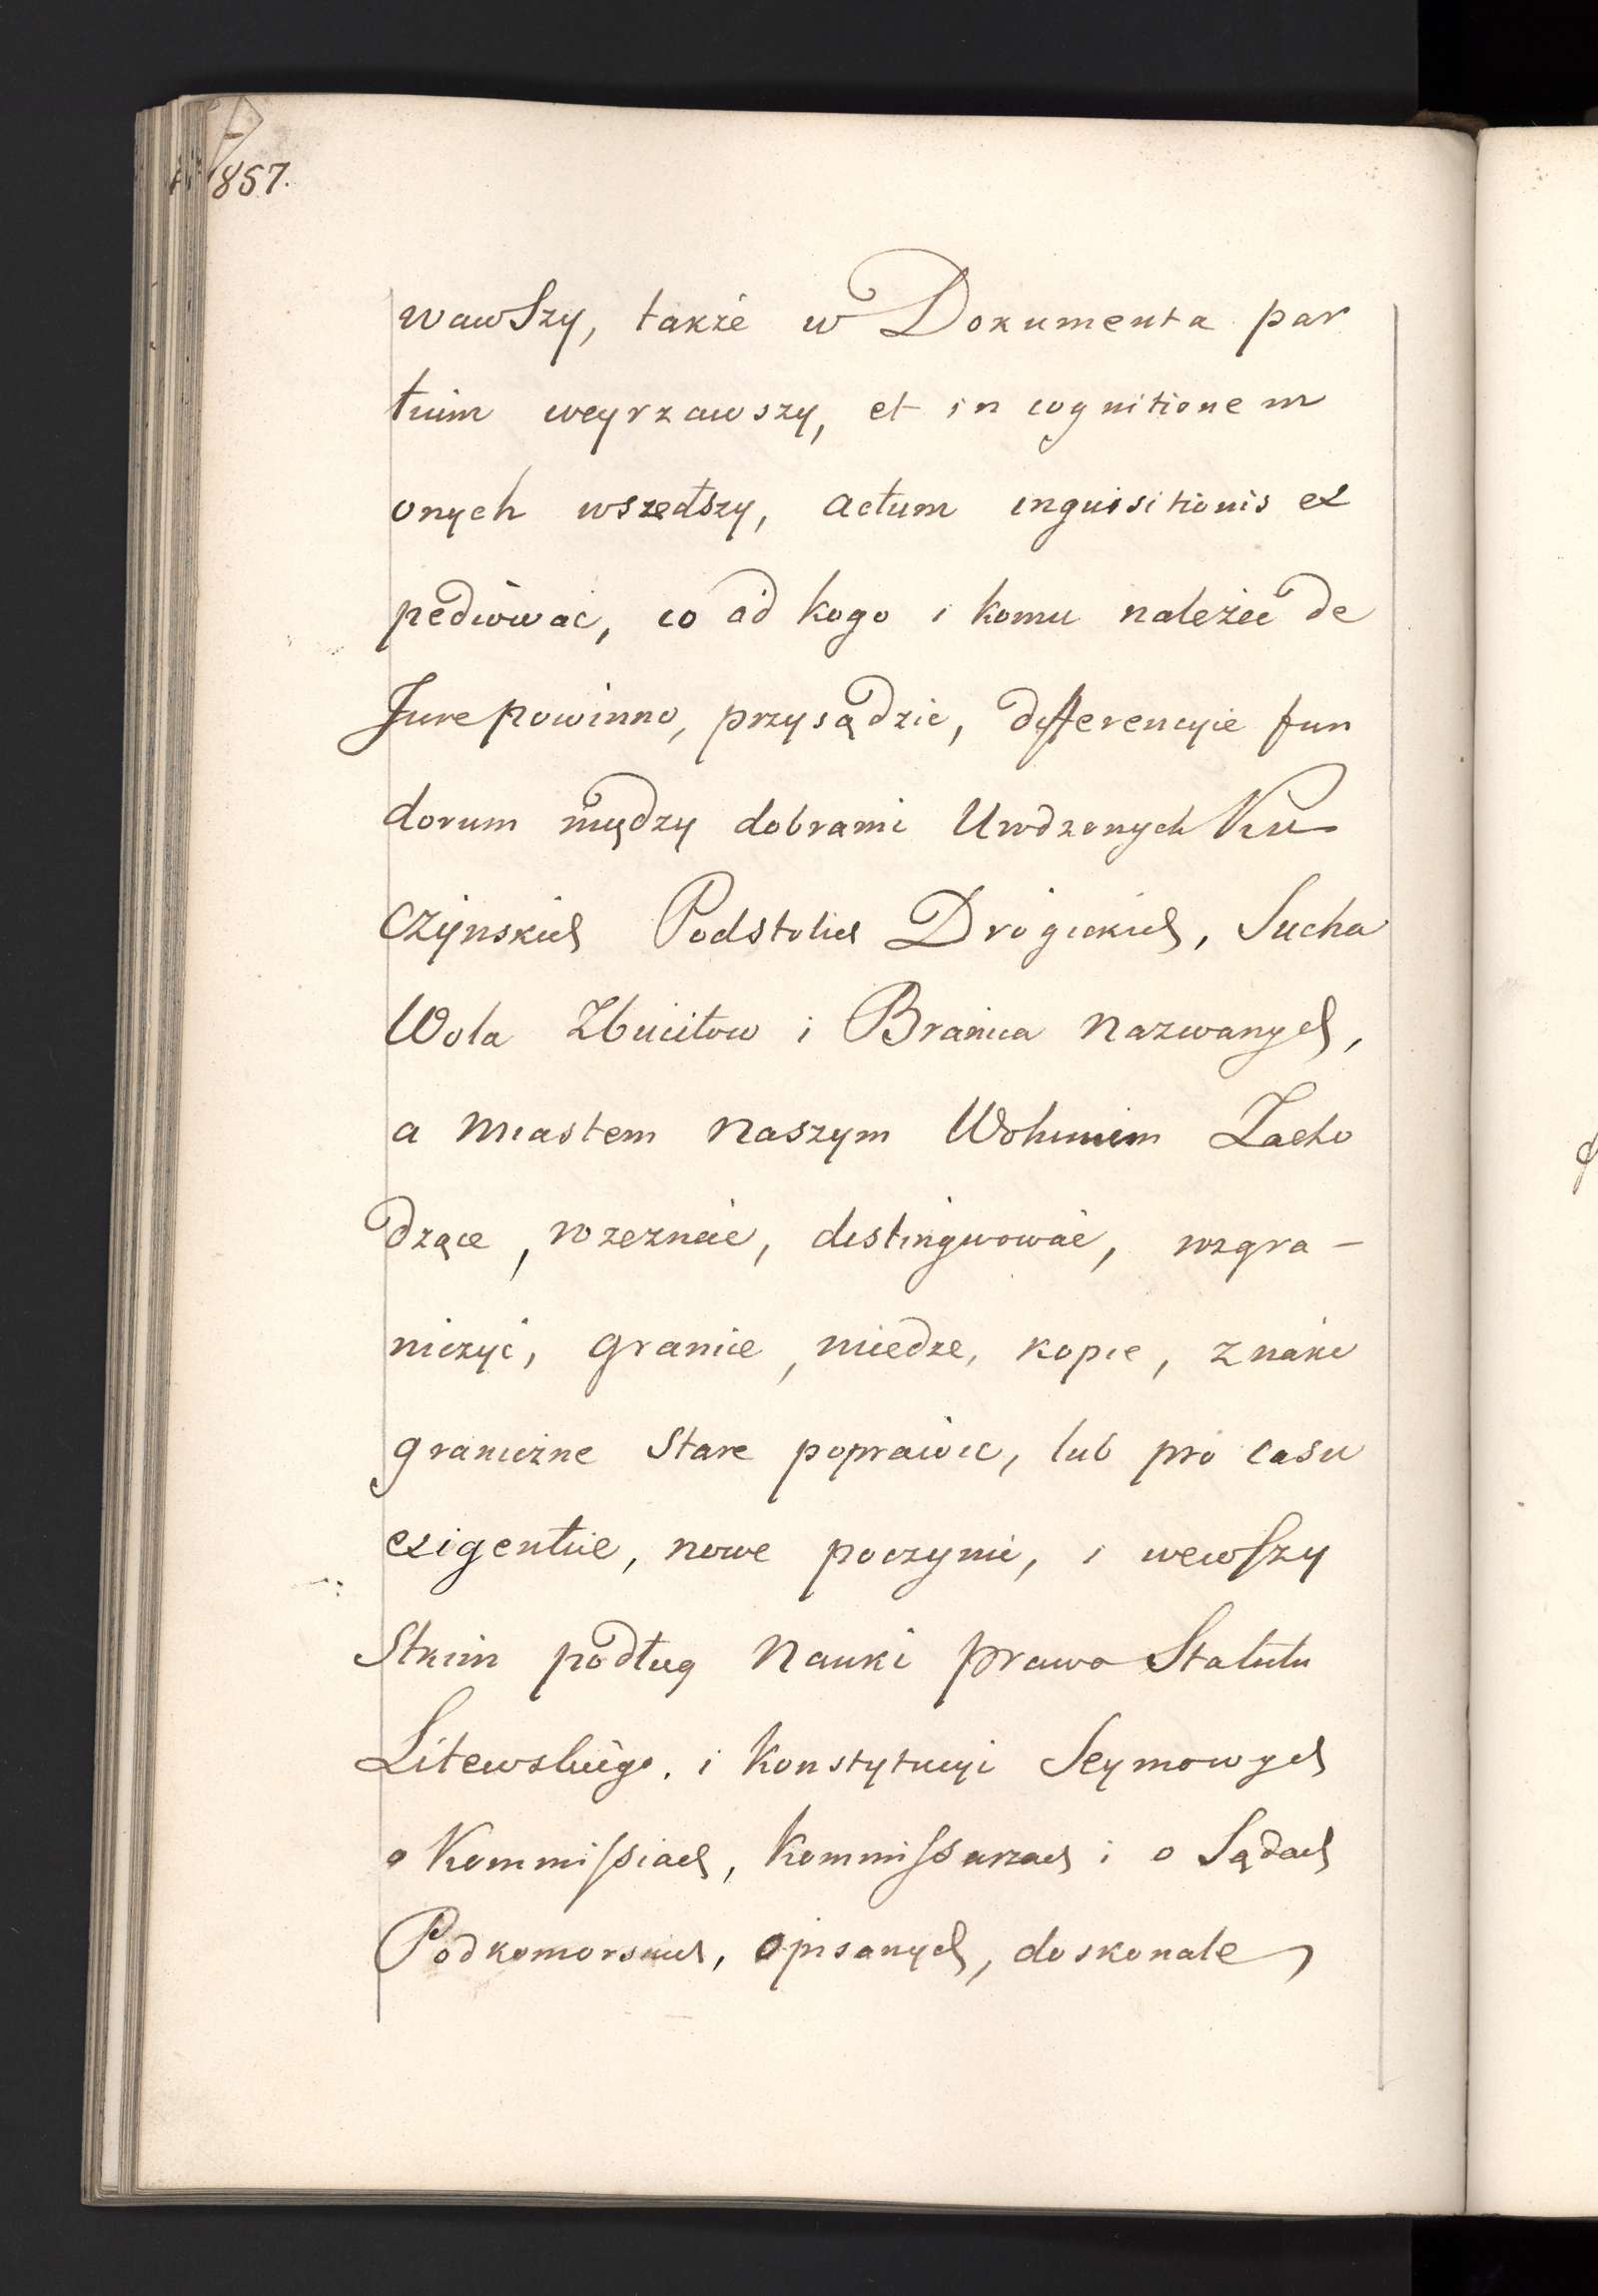 857.
wawszy, także w Dokumenta par
tium weyrzawszy, et in cognitionem
onych wszedłszy, actum inquisitionis ex
pediować, co od kogo i komu należeć de
Jure powinno, przysądzić, differencyie fun
dorum między dobrami Urodzonych Ku
czyńskich Podstolich Drogickich, Sucha
Wola Zbulitow i Branica nazwanych,
a miastem naszym Wohiniem Zacho
dzące, rozeznać, distingwować, rozgra-
niczyć, granice, miedze, kopce, znaki
graniczne stare poprawić, lub pro casu
exigentiae, nowe poczynić, i wewszy
stkim podług Nauki prawa Statutu
Litewskiego, i Konstytucyi Seymowych
o Kommissiach, Kommissarzach i o Sądach
Podkomorskich, opisanych, doskonale